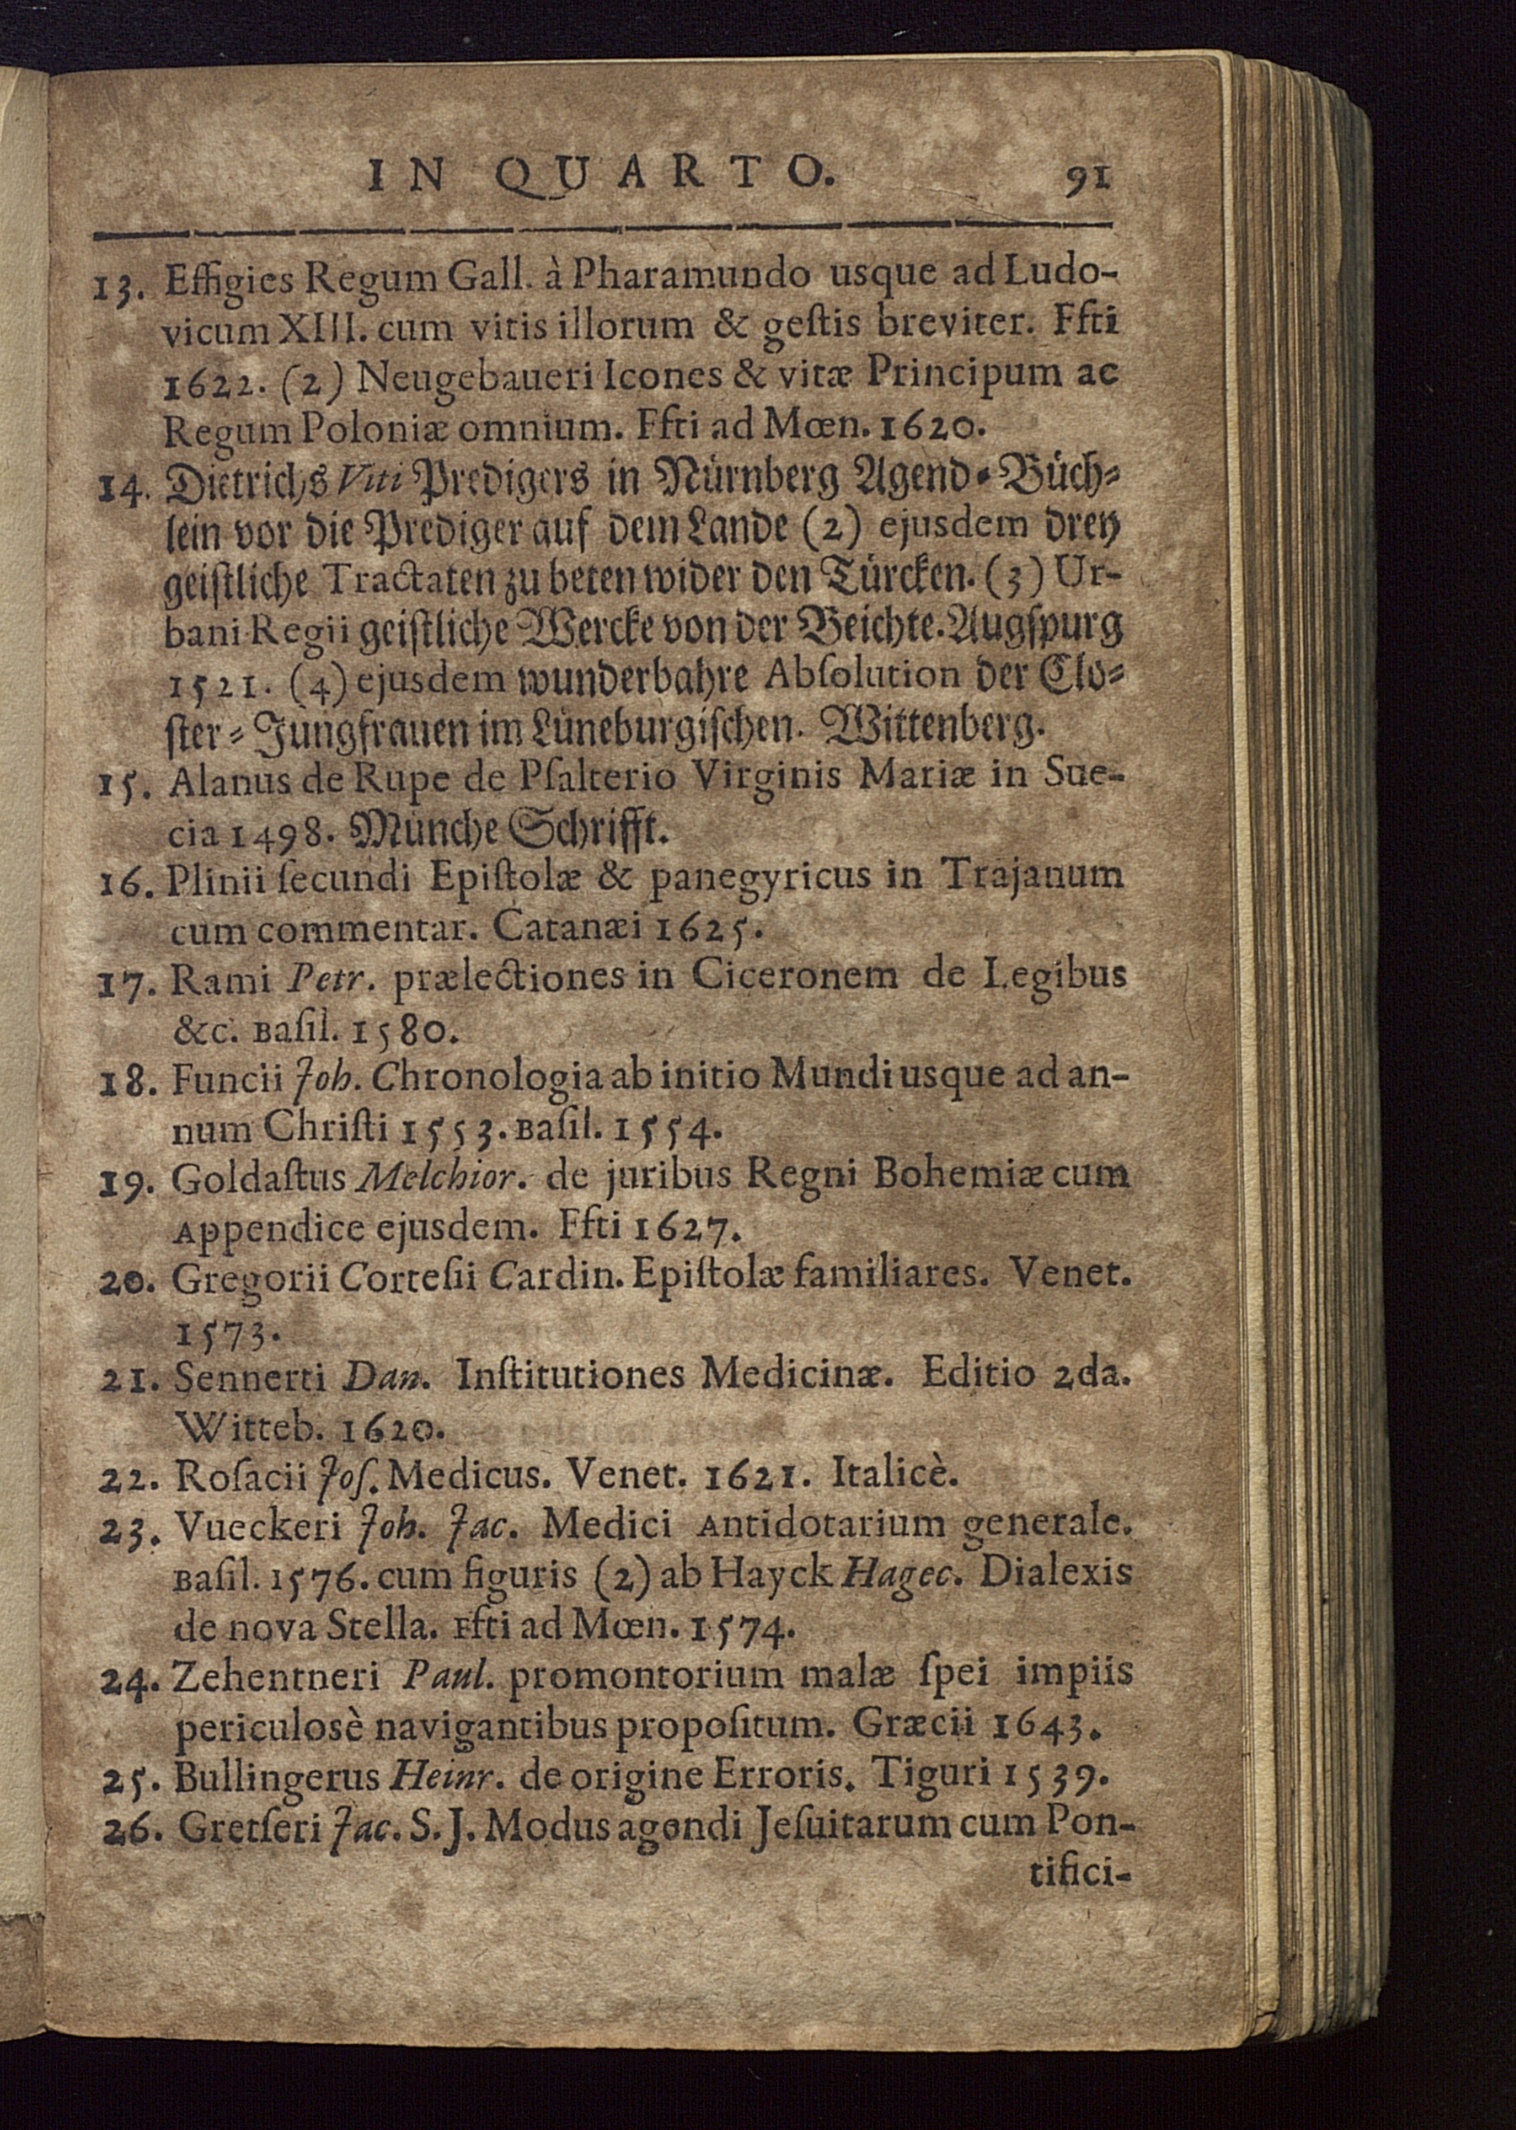 IN QUARTO. 91
13. Effigies Regum Gall. à Pharamundo usque ad Ludo-
vicum XIII. cum vitis illorum & geſtis breviter. Ffti
1622. (2) Neugebaueri Icones & vitæ Principum ac
Regum Poloniæ omnium. Ffti ad Mœn. 1620.
14. Dietrichs Viti Predigers in Nürnberg Agend-Büch-
lein vor die Prediger auf dem Lande (2) ejusdem drey
geiſtliche Tractaten zu beten wider den Türcken. (3) Ur-
bani Regii geiſtliche Wercke von der Beichte. Augſpurg
1521. (4) ejusdem wunderbahre Abſolution der Clo-
ſter-Jungfrauen im Lüneburgiſchen. Wittenberg.
15. Alanus de Rupe de Pſalterio Virginis Mariæ in Sue-
cia 1498. Münche Schrifft.
16. Plinii ſecundi Epiſtolæ & panegyricus in Trajanum
cum commentar. Catanæi 1625.
17. Rami Petr. prælectiones in Ciceronem de Legibus
&c. Baſil. 1580.
18. Funcii Joh. Chronologia ab initio Mundi usque ad an-
num Chriſti 1553. Baſil. 1554.
19. Goldaſtus Melchior. de juribus Regni Bohemiæ cum
Appendice ejusdem. Ffti 1627.
20. Gregorii Corteſii Cardin. Epiſtolæ familiares. Venet.
1573.
21. Sennerti Dan. Inſtitutiones Medicinæ. Editio 2da.
Witteb. 1620.
22. Roſacii Joſ. Medicus. Venet. 1621. Italicè.
23. Vueckeri Joh. Jac. Medici Antidotarium generale.
Baſil. 1576. cum figuris (2) ab Hayck Hagec. Dialexis
de nova Stella. Ffti ad Mœn. 1574.
24. Zehentneri Paul. promontorium malæ ſpei impiis
periculosè navigantibus propoſitum. Græcii 1643.
25. Bullingerus Heinr. de origine Erroris. Tiguri 1539.
26. Gretſeri Jac. S. J. Modus agendi Jeſuitarum cum Pon-
tifici-